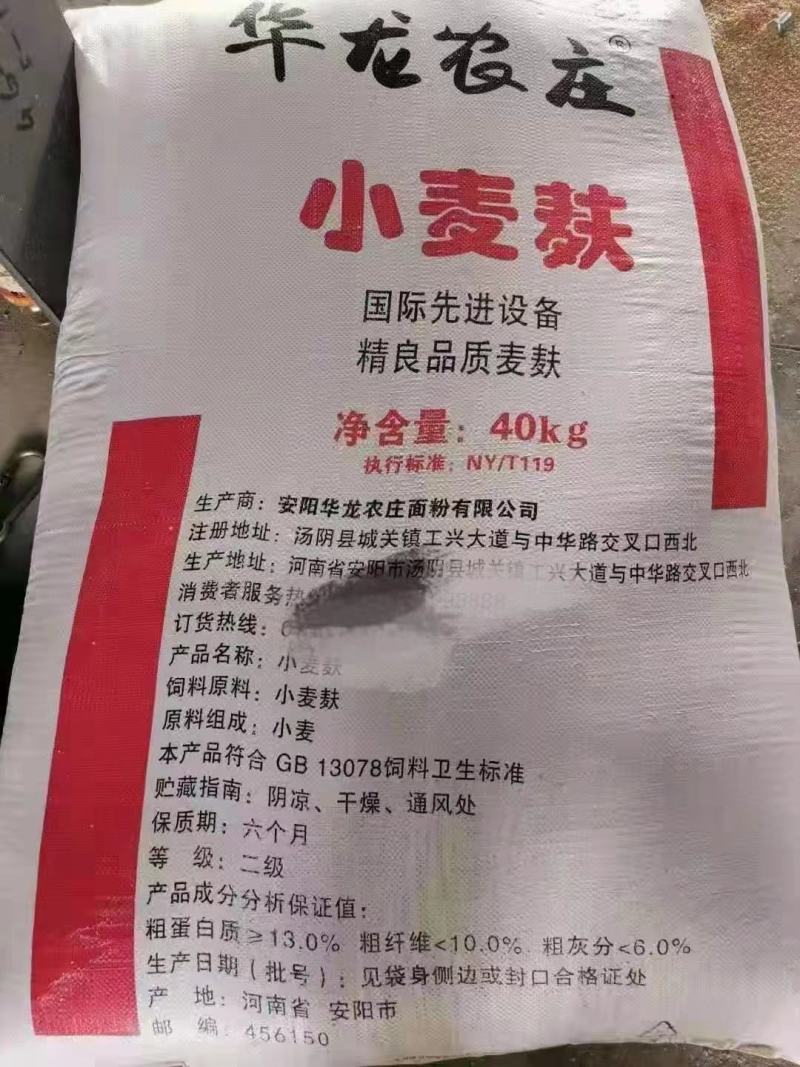 华龙农庄®
小麦麸
国际先进设备
精良品质麦麸
净含量：40kg
执行标准：NY/T119
生产商：安阳华龙农庄面粉有限公司
注册地址：汤阴县城关镇工兴大道与中华路交叉口西北
生产地址：河南省安阳市汤阴县城关镇工兴大道与中华路交叉口西北
消费者服务热
订货热线：
产品名称：小麦麸
饲料原料：小麦麸
原料组成：小麦
本产品符合 GB 13078饲料卫生标准
贮藏指南：阴凉、干燥、通风处
保质期：六个月
等 级：二级
产品成分分析保证值：
粗蛋白质≥13.0% 粗纤维<10.0% 粗灰分<6.0%
生产日期（批号）：见袋身侧边或封口合格证处
产 地：河南省 安阳市
邮 编：456150